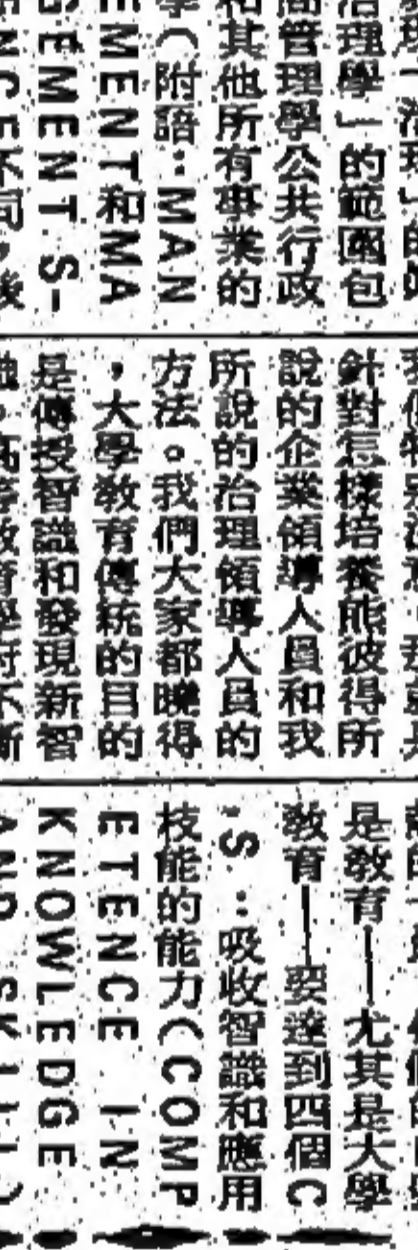 治理學」的範圍包
商管理學公共行政
和其他所有事業的
學（附語：MAN
EMENT和MA
GEMENT S-
ENCE不同，後
針對怎樣培養能彼得所
說的企業領導人員和我
所說的治理領導人員的
方法。我們大家都曉得
，大學教育傳統的目的
是傳授智識和發現新智
是教育——尤其是大學
教育——要達到四個C
'S：吸收智識和應用
技能的能力（COMP
ETENCE IN
KNOWLEDGE
AND SKILL）